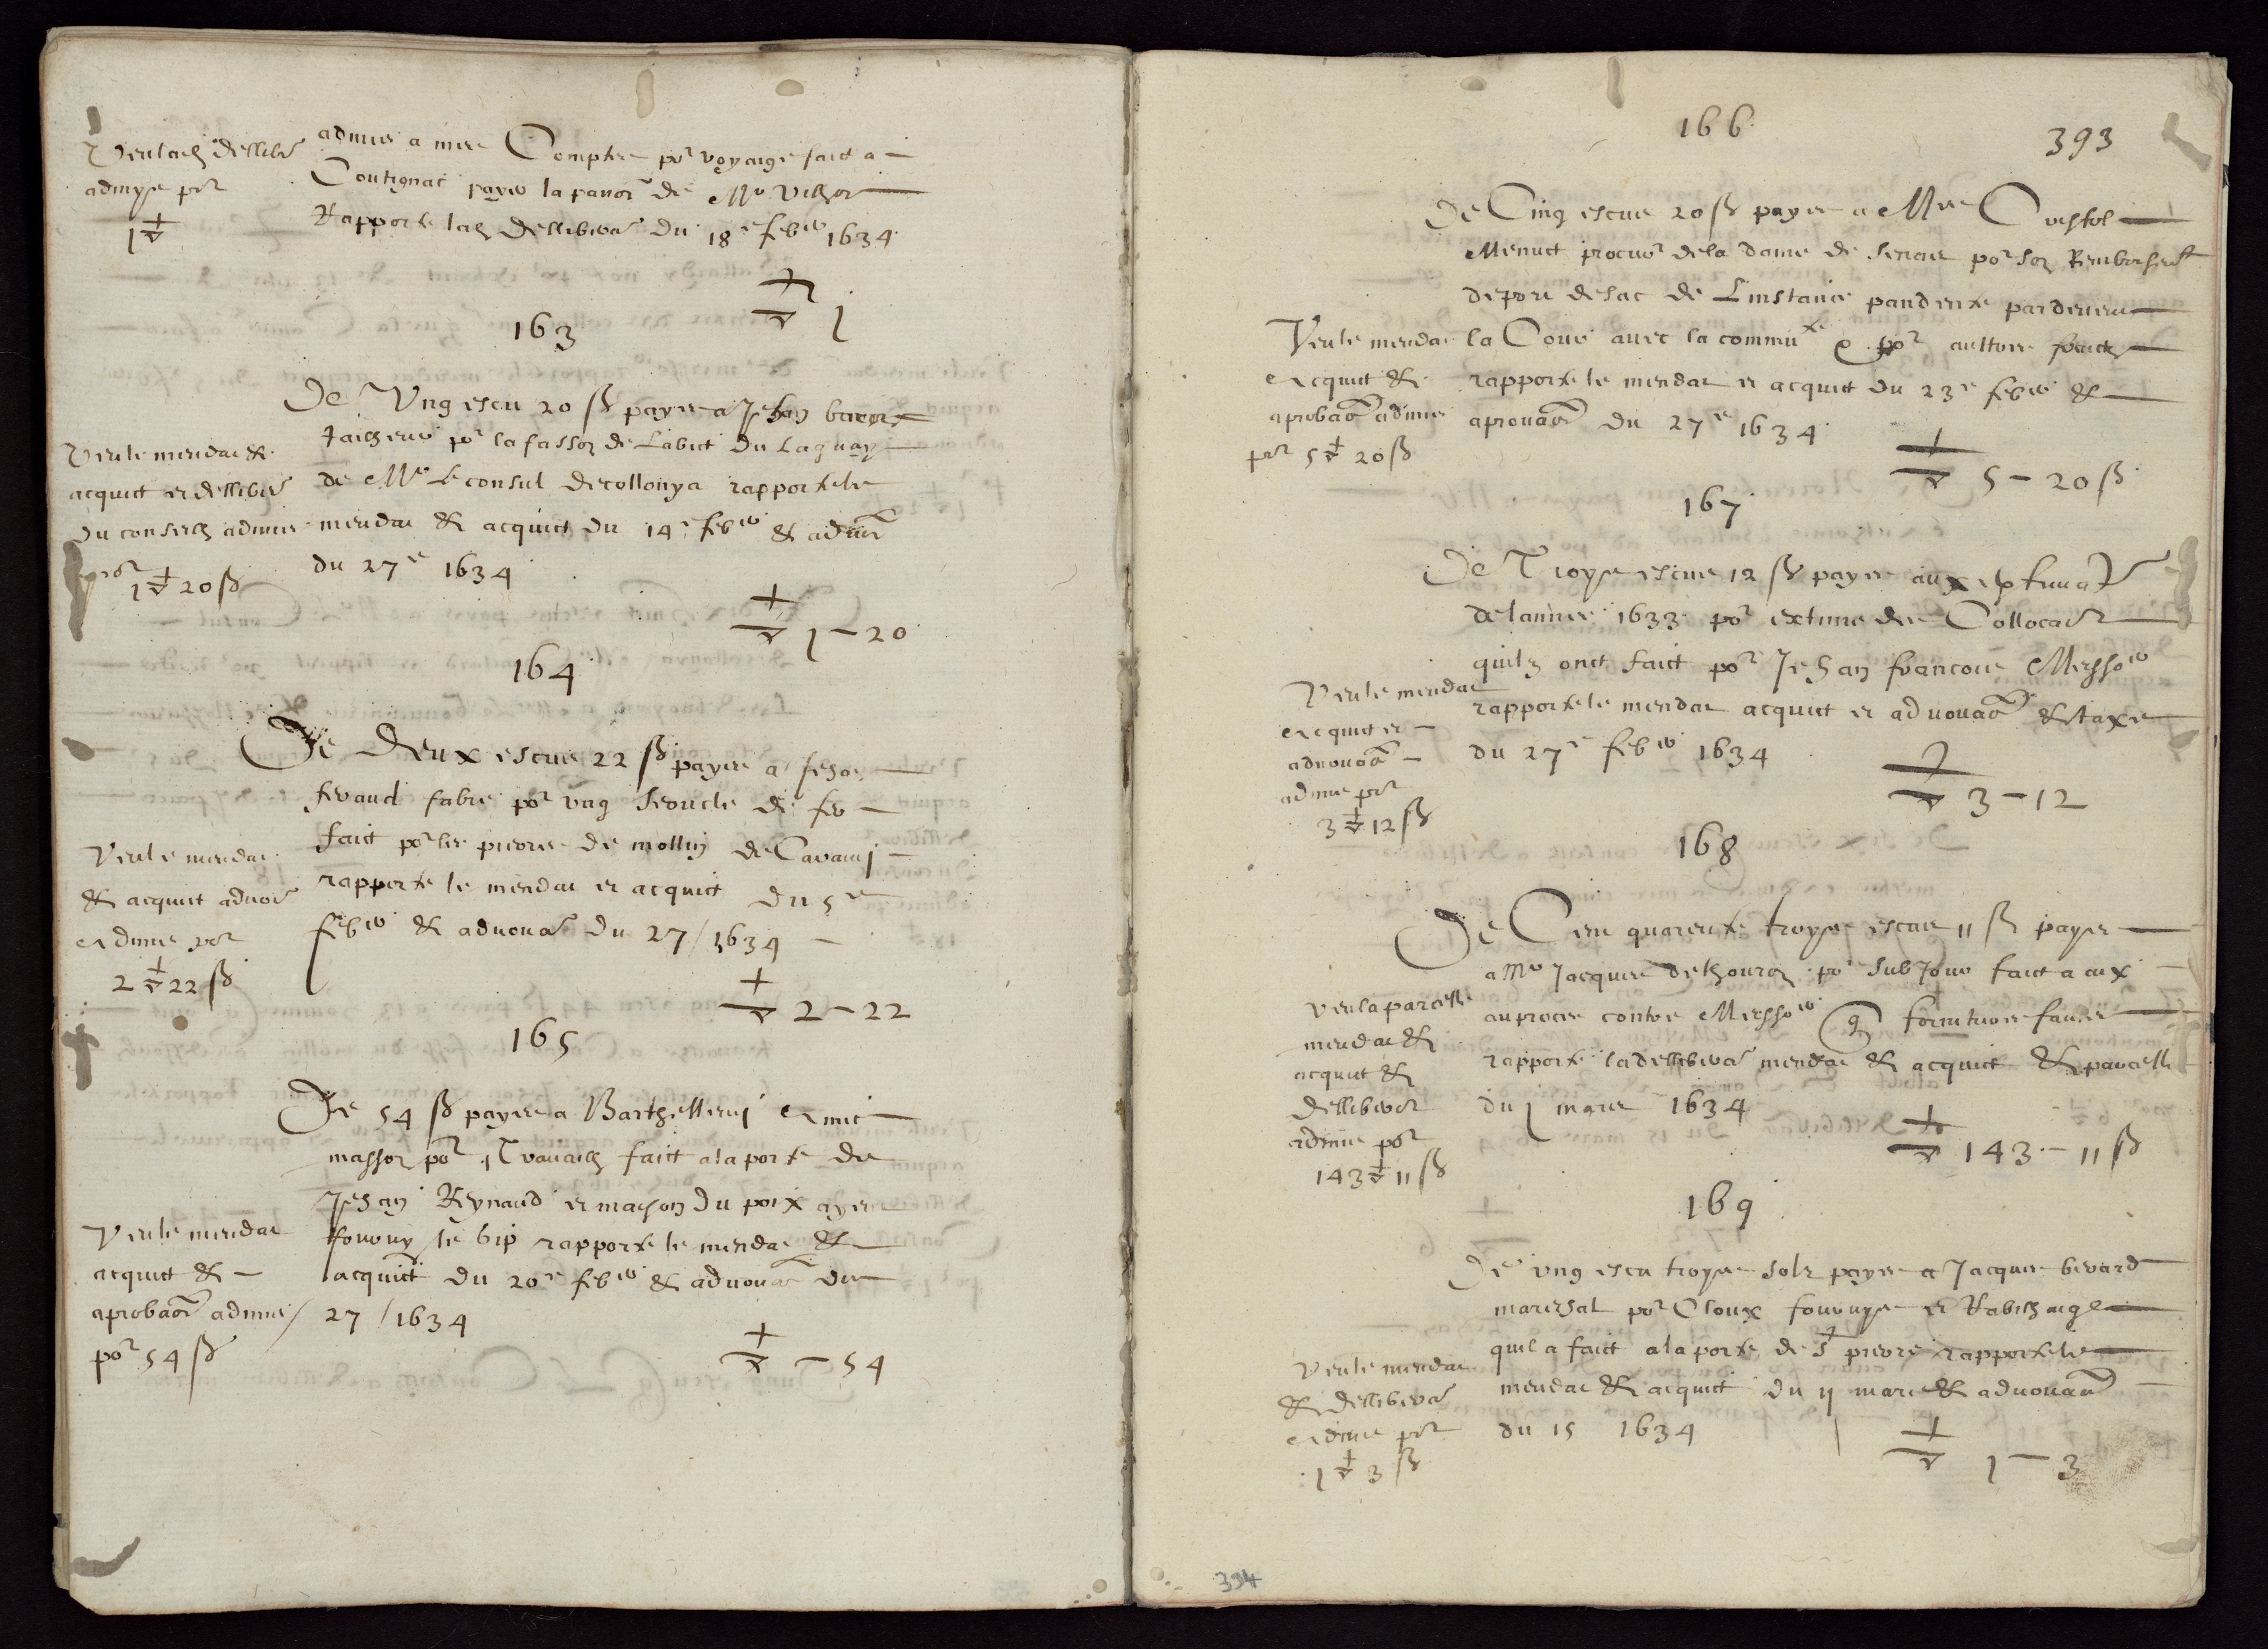 admis a mre Compte por voyaige fait a
Coutignac payer la pancr de Mr
Rapporte lad delliberaon du 18e febvr 1634
Veu lad delliber
admise por
1
1
163
De Ung escu 20 ß payes a Jehan
tailheur por la fasson de Labict du Laquay
de Mr Le consul decollonya rapporte le
mendat & acquict du 14e febvr & advuon
du 27e 1634
Veu le mendat &
acquict et delliber
du conseilh admis
por 1 20 ß
1 - 20
164
De Deux escus 22 ß payes a
fabre por ung seoucle de fer
faict por les pierres de mollin de Caramj
rapporte le mendat et acquict du 5e
febvr & advouaon du 27 / 1634
Veu le mendat
& acquict advon
admis por
2 22 ß
2 - 22
165
De 54 ß payes a Barthellemj
masson por Travailh faict a la porte de
Jehan Reynaud et maison du poix ayant
fourny le gip rapporte le mendat &
acquict du 20e febvr & advouaon du
27 / 1634
Veu le mendat
acquict &
aprobaon admis
por 54 ß
- 54
166
393
De Cinq escus 20 ß payes a Mre Cristol
Menut procur de la dame de por son Remborsemt
de sac de Linstance pandente pardevant
la Cour avec la commute por aultres
rapporte le mendat et acquict du 23e febvr &
aprouaon du 27e 1634
Veu le mendat
acquict &
aprobaon admis
por 5 20 ß
5 - 20 ß
167
De Troys escus 12 ß payes aux extimatrs
de lannee 1633 por extime des Collocaons
quilz ont faict por Jehan francois Meyssor
rapporte le mendat acquict et advouaon & taxe
du 27e febvr 1634
Veu le mendat
acquict et
advouaon
admis por
3 12 ß
3 - 12
168
De Cent quarente troys escus 11 ß payes
a Mr Jacques por Subjour faict a aix
au proces contre Meyssor fornitures faictes
rapporte la delliberaon mendat & acquict & parcelle
du j mars 1634
Veu la parcelle
mendat &
acquict &
delliberaon
admis por
143 11 ß
143 - 11 ß
169
De ung escu troys solz payes a Jacques berard
mareschal por Cloux fournys et Rabilhaige
quil a faict a la porte de St pierre rapporte le
mendat & acquict du 11 mars & advouaon
du 15 1634
Veu le mendat
& delliberaon
admis por
1 3 ß
1 - 3
394